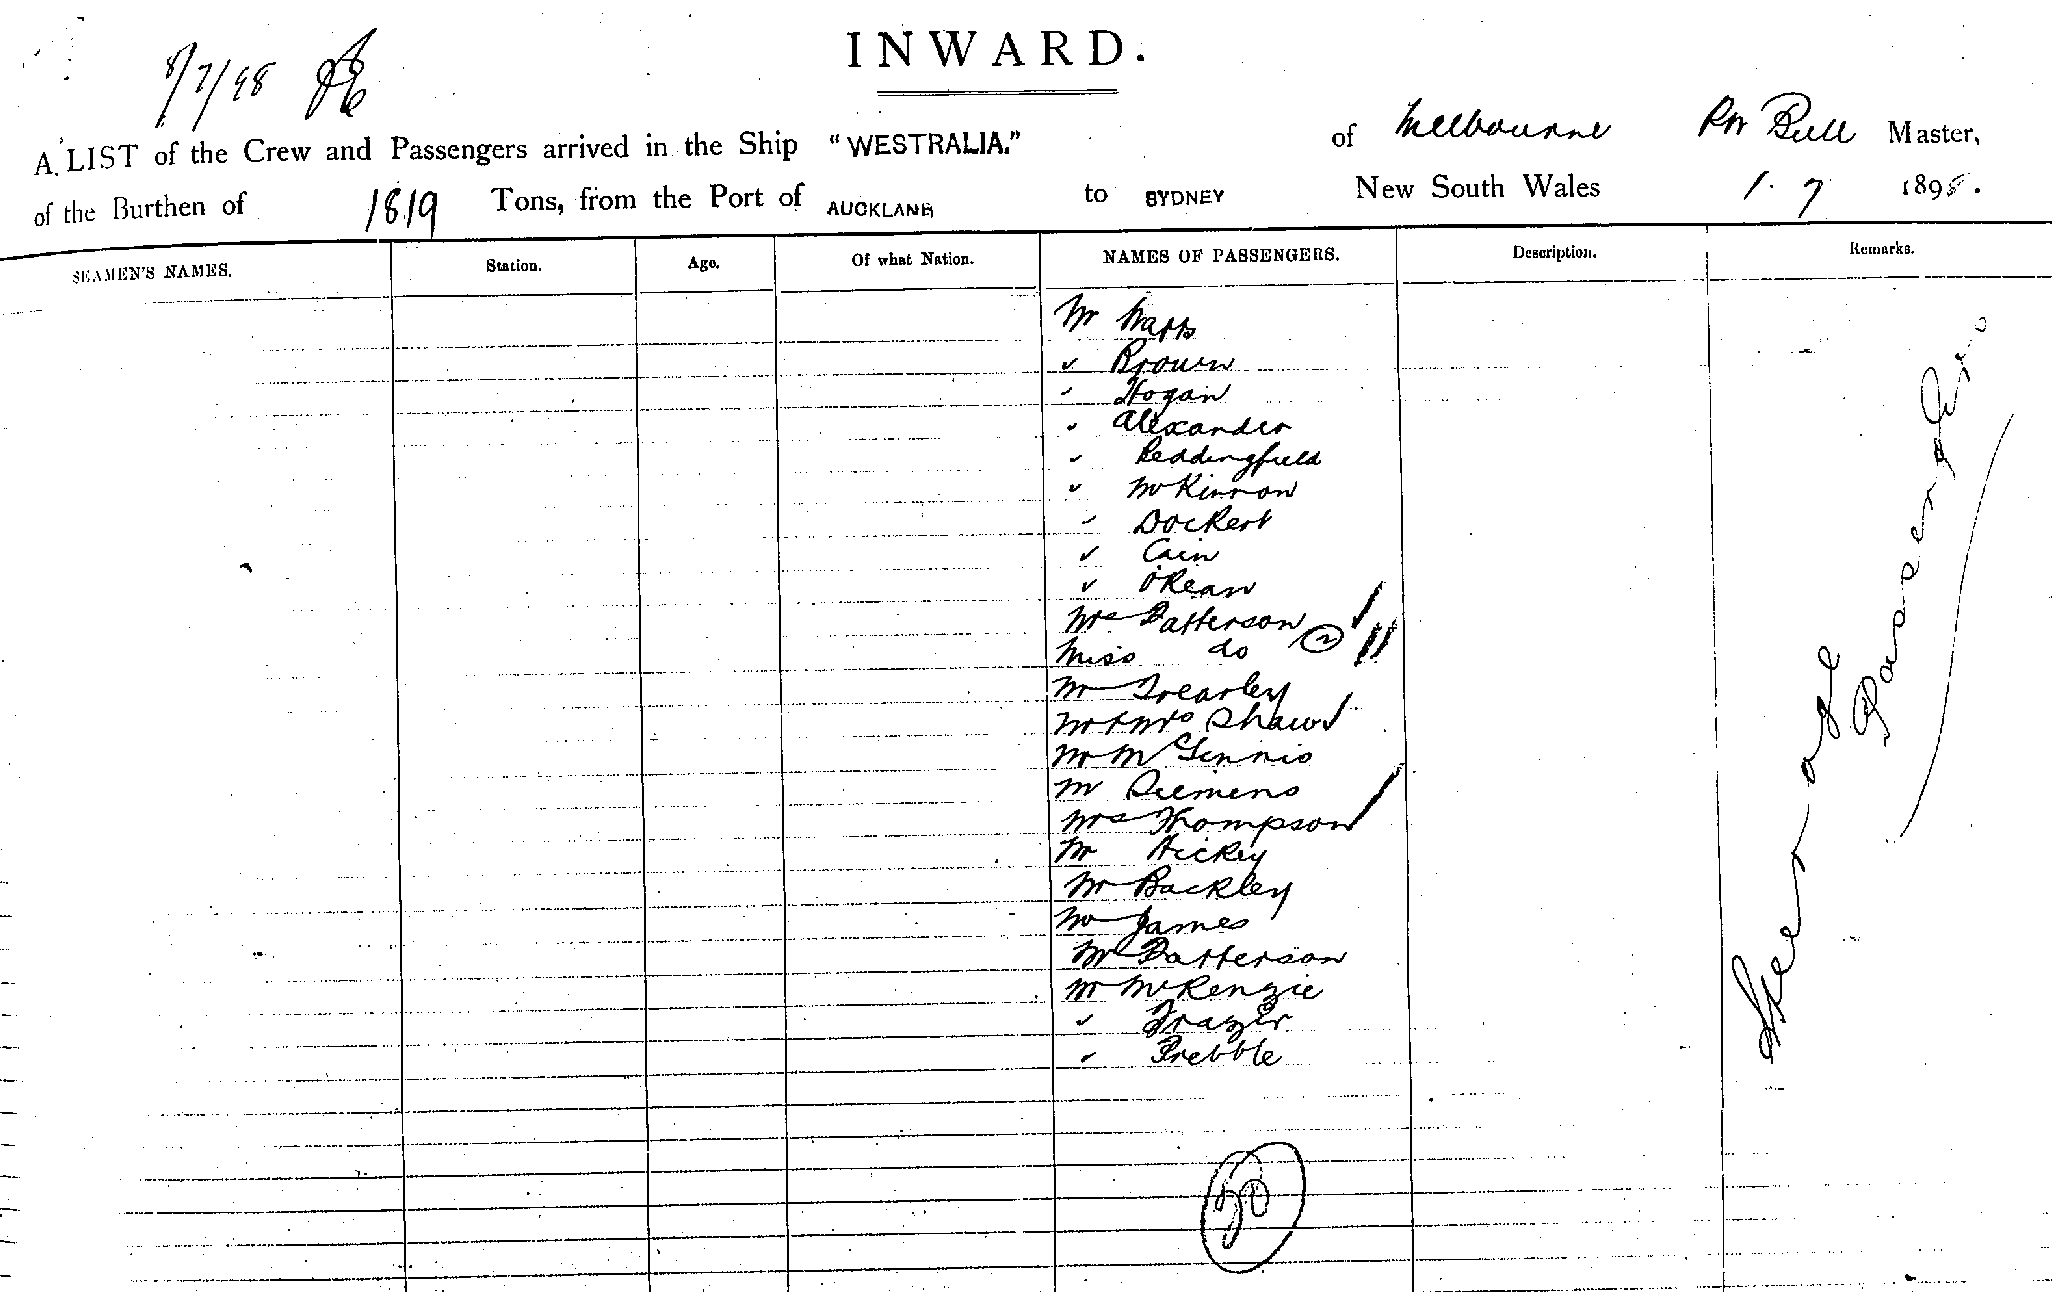 INWARD.
8/7/98
A LIST of the Crew and Passengers arrived in the Ship "WESTRALIA." of Melbourne Bull Master,
of the Burthen of 1819 Tons, from the Port of AUCKLAND to SYDNEY New South Wales 1. 7 1898.
SEAMEN'S NAMES. Station. Age. Of what Nation. NAMES OF PASSENGERS. Description. Remarks.
Mr Watts
✓ Brown
✓ Hogan
✓ Alexander
✓ Reddingfield
✓ McKinnon
✓ Dockert
✓ Cain
✓ O'Kean
Mrs Patterson
Miss do 2
Mr Trearley
Mr & Mrs Shaw
Mr McGinnis
Mr Siemens
Mrs Thompson
Mr Hickey
Mr Backley
Mr James
Mr Patterson
Mr McKenzie
✓ Frazer
✓ Prebble
Steerage
Passengers